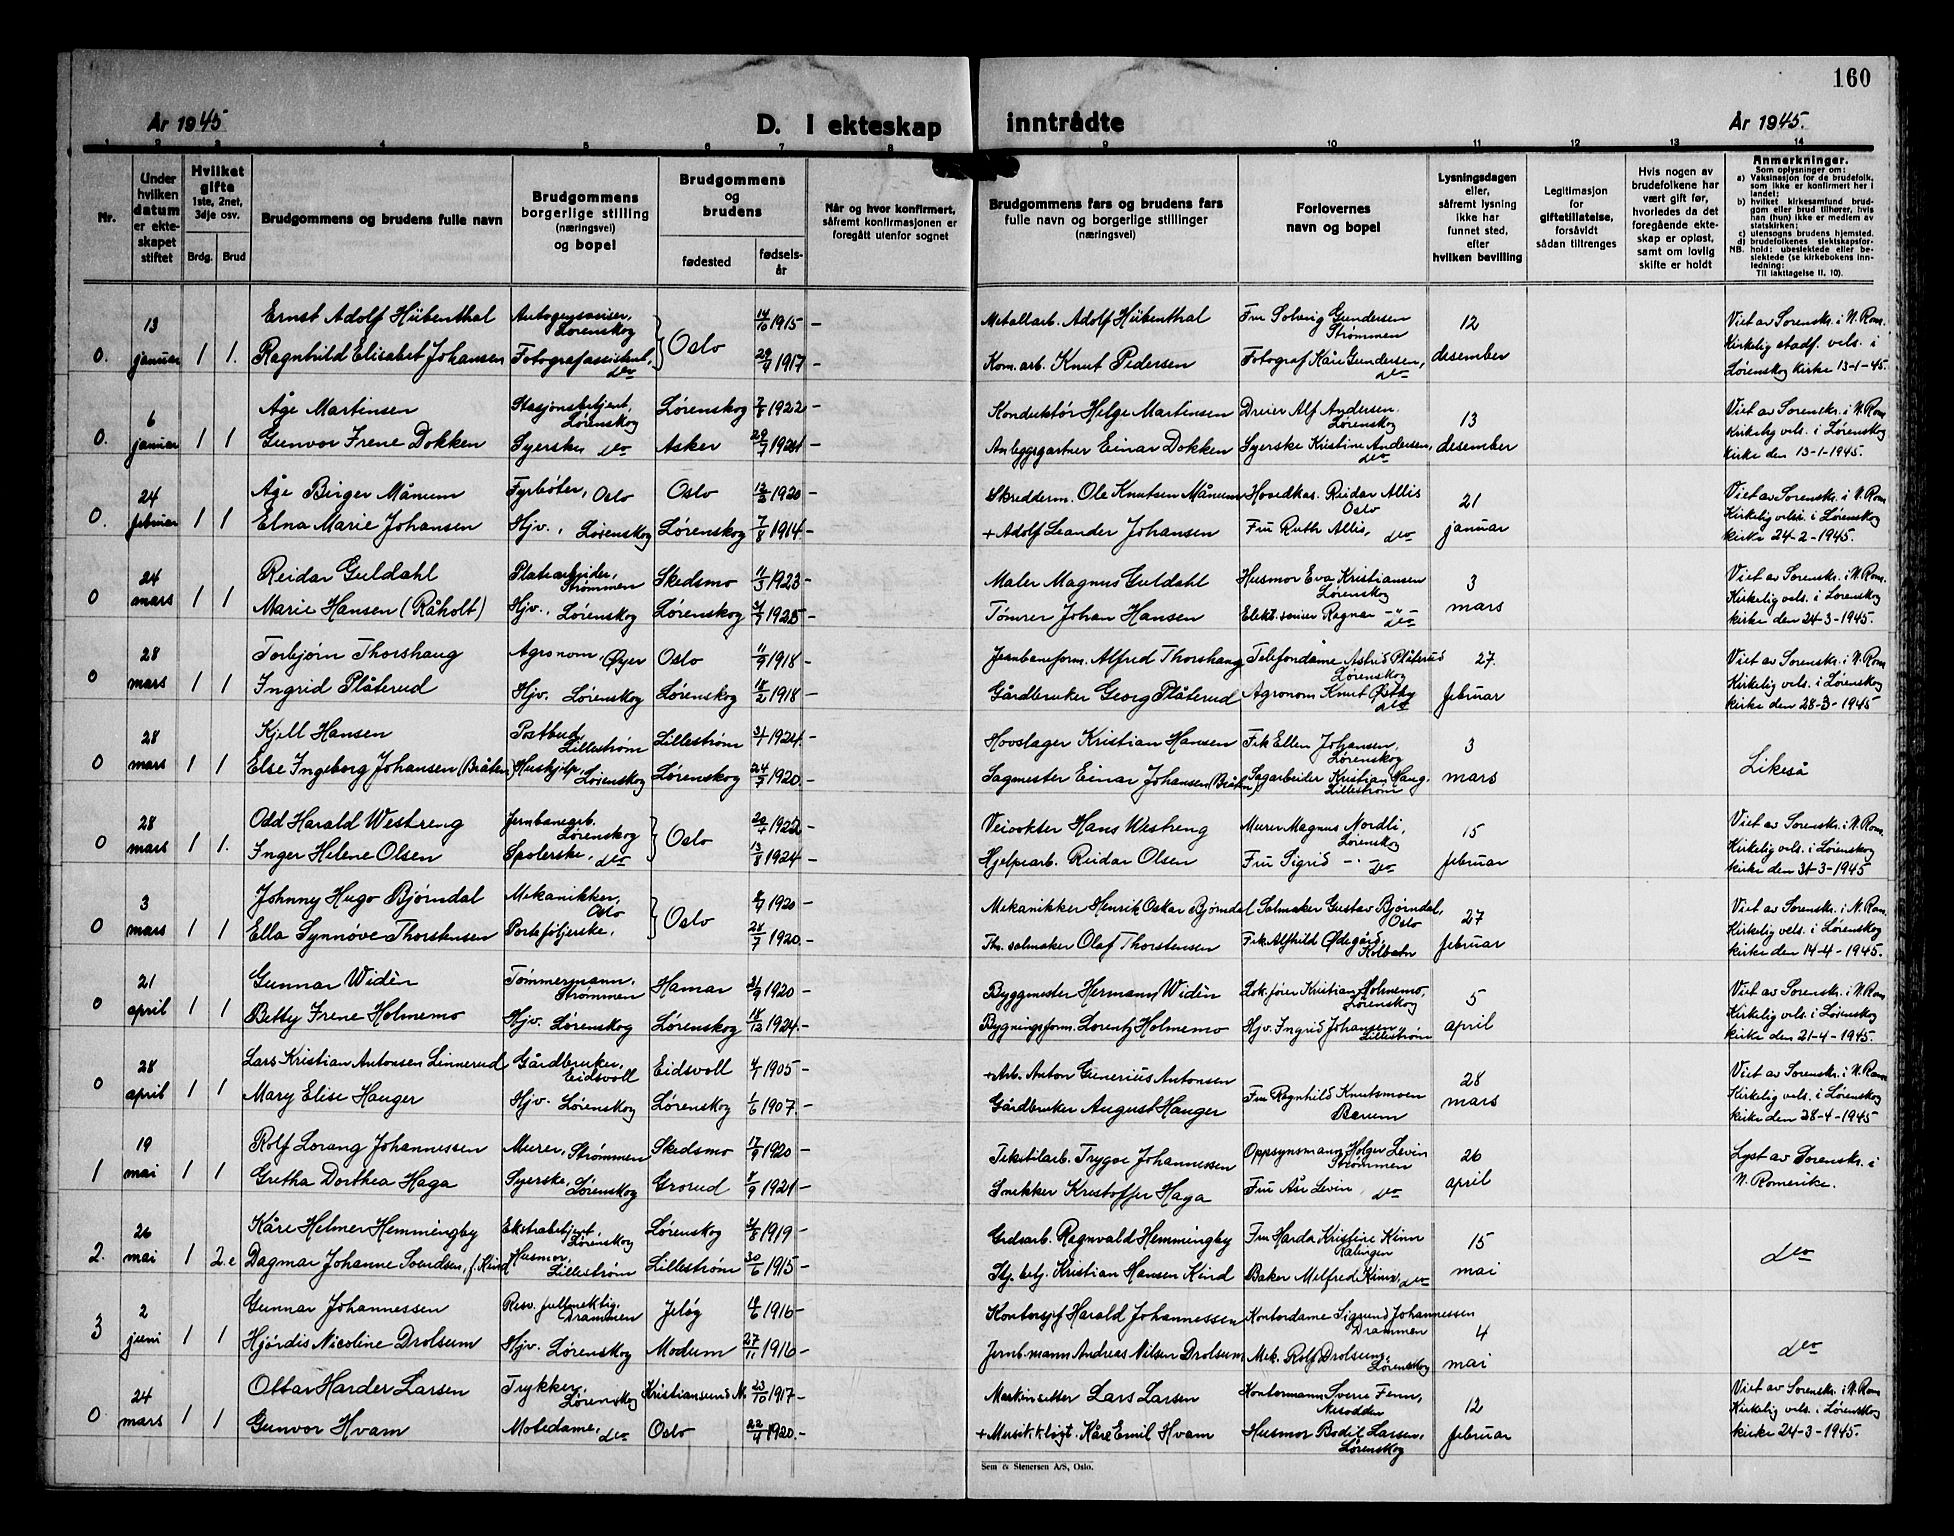 160
År 1945
D. I ekteskap inntrådte
År 1945.
1 2 3 4 5 6 7 8 9 10 11 12 13 14
Nr.
Under hvilken datum er ekteskapet stiftet
Hvilket gifte 1ste, 2net, 3dje osv.
Brdg. Brud
Brudgommens og brudens fulle navn
Brudgommens borgerlige stilling (næringsvei) og bopel
Brudgommens og brudens
fødested
fødselsår
Når og hvor konfirmert, såfremt konfirmasjonen er foregått utenfor sognet
Brudgommens fars og brudens fars fulle navn og borgerlige stillinger (næringsvei)
Forlovernes navn og bopel
Lysningsdagen eller, såfremt lysning ikke har funnet sted, efter hvilken bevilling
Legitimasjon for giftetillatelse, forsåvidt sådan tiltrenges
Hvis nogen av brudefolkene har vært gift før, hvorledes da det foregående ekteskap er opløst, samt om lovlig skifte er holdt
Anmerkninger.
Som oplysning om:
a) Vaksinasjon for de brudefolk, som ikke er konfirmert her i landet;
b) hvilket kirkesamfund brudgom eller brud tilhører, hvis han (hun) ikke er medlem av statskirken;
c) utensogns brudens hjemsted.
d) brudefolkenes slektskapsforhold: ubeslektede eller beslektede (se kirkebokens innledning:
NB. Til iakttagelse II, 10).
0. 13 januar 1 1.
Ernst Adolf Hübenthal
Lørenskog
Oslo 14/10 1915 –
Metallarb. Adolf Hübenthal
Fru Solveig Gundersen Strømmen
12 desember
Viet av Sorenskr. i N. Rom.
Kirkelig stadf. vels. i
Lørenskog kirke 13-1-45.
Ragnhild Elisabet Johansen
Fotografassistent, do
1917 –
Kom. arb. Knut Pedersen
Fotograf Kåre Gundersen, do
0. 6 januar 1 1
Åge Martinsen
Stasjonsbetjent, Lørenskog
Lørenskog 7/8 1922 –
Konduktør Helge Martinsen
Dreier Alf Andersen. Lørenskog
13 desember
Viet av Sorenskr. i N. Rom
Kirkelig vels. i Lørenskog
kirke den 13-1-1945.
Gunvor Irene Dokken
Syerske do
Asker 1924 –
Anleggsgartner Einar Dokken
Syerske Kristine Andersen, do
0. 24 februar 1 1
Åge Birger Månum
Fyrbøter, Oslo
Oslo 1920 –
Skredderm. Ole Knutsen Månum
Hovedkas. Reidar Allis Oslo
21 januar
Viet av Sorenskr. i N. Rom.
Kirkelig vels. i Lørenskog
kirke 24-2-1945.
Elna Marie Johansen
Hjv., Lørenskog
Lørenskog 7/8 1914 –
+ Adolf Leander Johansen
Fru Ruth Allis, do
0 24 mars 1 1
Reidar Guldahl
Platearbeider, Strømmen
Skedsmo 11/3 1923 –
Maler Magnus Guldahl
Husmor Eva Kristiansen Lørenskog
3 mars
Viet av Sorenskr. i N. Rom.
Kirkelig vels. i Lørenskog
kirke den 24-3-1945.
Marie Hansen (Råholt)
Hjv., Lørenskog
Lørenskog 1925 –
Tømrer Johan Hansen
Ragnar –"– do
0 28 mars 1 1
Torbjørn Thorshaug
Agronom, Øyer
Oslo 11/9 1918 –
Jernbaneform. Alfred Thorshaug
Telefondame Astrid Plåterud Lørenskog
27. februar
Viet av Sorenskr. i N. Rom
Kirkelig vels. i Lørenskog
kirke den 28-3-1945
Ingrid Plåterud
Hjv. Lørenskog
Lørenskog 18/2 1918 –
Gårdbruker Georg Plåterud
Agronom Knut Østby do
0 28 mars 1 1
Kjell Hansen
Postbud, Lillestrøm
Lillestrøm 1924 –
Hovslager Kristian Hansen
Frk Ellen Johansen, Lørenskog
3 mars
Likeså
Else Ingeborg Johansen (Bråten)
Hushjelp, Lørenskog
Lørenskog 1920.
Sagmester Einar Johansen (Bråten)
Sagarbeider Kristian Haug. Lillestrøm
0 28 mars 1 1.
Odd Harald Westreng
Jernbanearb. Lørenskog
Oslo 20/4 1922 –
Veivokter Hans Westreng
Murer Magnus Nordli, Lørenskog
15 februar
Viet av Sorenskr. i N. Rom
Kirkelig vels. i Lørenskog
kirke den 31-3-1945
Inger Helene Olsen
Spolerske, do
13/8 1924 –
Hjelpearb. Reidar Olsen
Fru Sigrid –"– do
0 3 mars 1 1
Johnny Hugo Bjørndal
Mekanikker, Oslo
Oslo 1920 –
Mekanikker Henrik Oskar Bjørndal
Salmaker Gustav Bjørndal, Oslo
27 februar
Viet av Sorenskr. i N. Rom.
Kirkelig vels. i Lørenskog
kirke den 14-4-1945.
Ella Synnøve Thorstensen
Porteføljerske,
28/7 1920 –
salmaker Olaf Thorstensen
Frk. Alfhild Ødegård, Kolbotn
0 21 april 1 1
Gunnar Widèn
Tømmermann, Strømmen
Hamar 1920 –
Byggmester Hermann Widèn
Lok. fører Kristian Holmemo, Lørenskog
5 april
Viet av Sorenskr. i N. Rom
Kirkelig vels. i Lørenskog
kirke den 21-4-1945.
Betty Irene Holmemo
Hjv. Lørenskog
Lørenskog 18/12 1924 –
Bygningsform. Lorentz Holmemo
Hjv. Ingrid Johansen, Lillestrøm
0 28 april 1 1
Lars Kristian Antonsen Linnerud
Gårdbruker, Eidsvoll
Eidsvoll 4/1 1905 –
+ Arb. Anton Gunerius Antonsen
28 mars
Viet av Sorenskr. i N. Rom
Kirkelig vels. i Lørenskog
kirke den 28-4-1945
Mary Elise Hauger
Hjv. Lørenskog
Lørenskog 1/6 1907 –
Gårdbruker August Hauger
Fru Ragnhild Knutsmoen Bærum
1 19 mai 1 1
Rolf Lorang Johannessen
Murer, Strømmen
Skedsmo 17/9 1920 –
Tekstilarb. Trygve Johannessen
Oppsynsmann Holger Levin Strømmen
26 april
Lyst av Sorenskr. i
N. Romerike.
Gretha Dorthea Haga
Syerske, Lørenskog
Grorud 1921 –
Snekker Kristoffer Haga
Fru Åse Levin, do
2. 26 mai 1 2.e
Kåre Helmer Hemmingby
Ekstrabetjent Lørenskog
Lørenskog 1919 –
Grdsarb. Ragnvald Hemmingby
Fru Harda Kristine Kinn Rælingen
15 mai
do
Dagmar Johanne Svendsen, f. Kind
Husmor, Lillestrøm
Lillestrøm 30/6 1915 –
Stj. betj. Kristian Hansen Kind
Baker Melfred Kinn, do
3 2 juni 1 1
Gunnar Johannessen
Resv. fullmektig. Drammen
Jeløy 1916 –
Kontorsjef Harald Johannessen
Kontordame Sigrund Johannessen Drammen
4 mai
do
Hjørdis Nicoline Drolsum
Hjv. Lørenskog
Modum 27/11 1916 –
Jernb. mann Andreas Nilsen Drolsum
Mek. Rolf Drolsum, Lørenskog
0 24 mars 1 1
Ottar Harder Larsen
Trykker, Lørenskog
Kristiansund N. 23/10 1917 –
Maskinsetter Lars Larsen
Kontormann Sverre Fenn, Nesodden
12 februar
Viet av Sorenskr. i N. Rom
Kirkelig vels. i Lørenskog
kirke 24-3-1945.
Gunvor Hvam
Motedame, do
Oslo 22/4 1920. –
Kåre Emil Hvam
Husmor Bodil Larsen, Lørenskog
Sem & Stenersen A/S, Oslo.